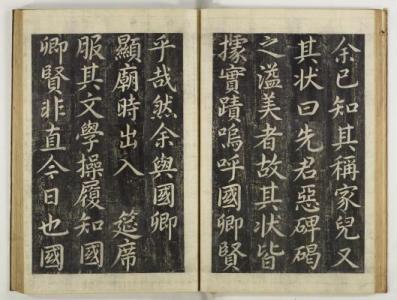 余已知其稱家兒又
其状曰先君惡碑碣
之溢美者故其状皆
據實蹟嗚呼國卿賢
乎哉然余與國卿
顯廟時出入 筵席
服其文學操履知國
卿賢非直今日也國